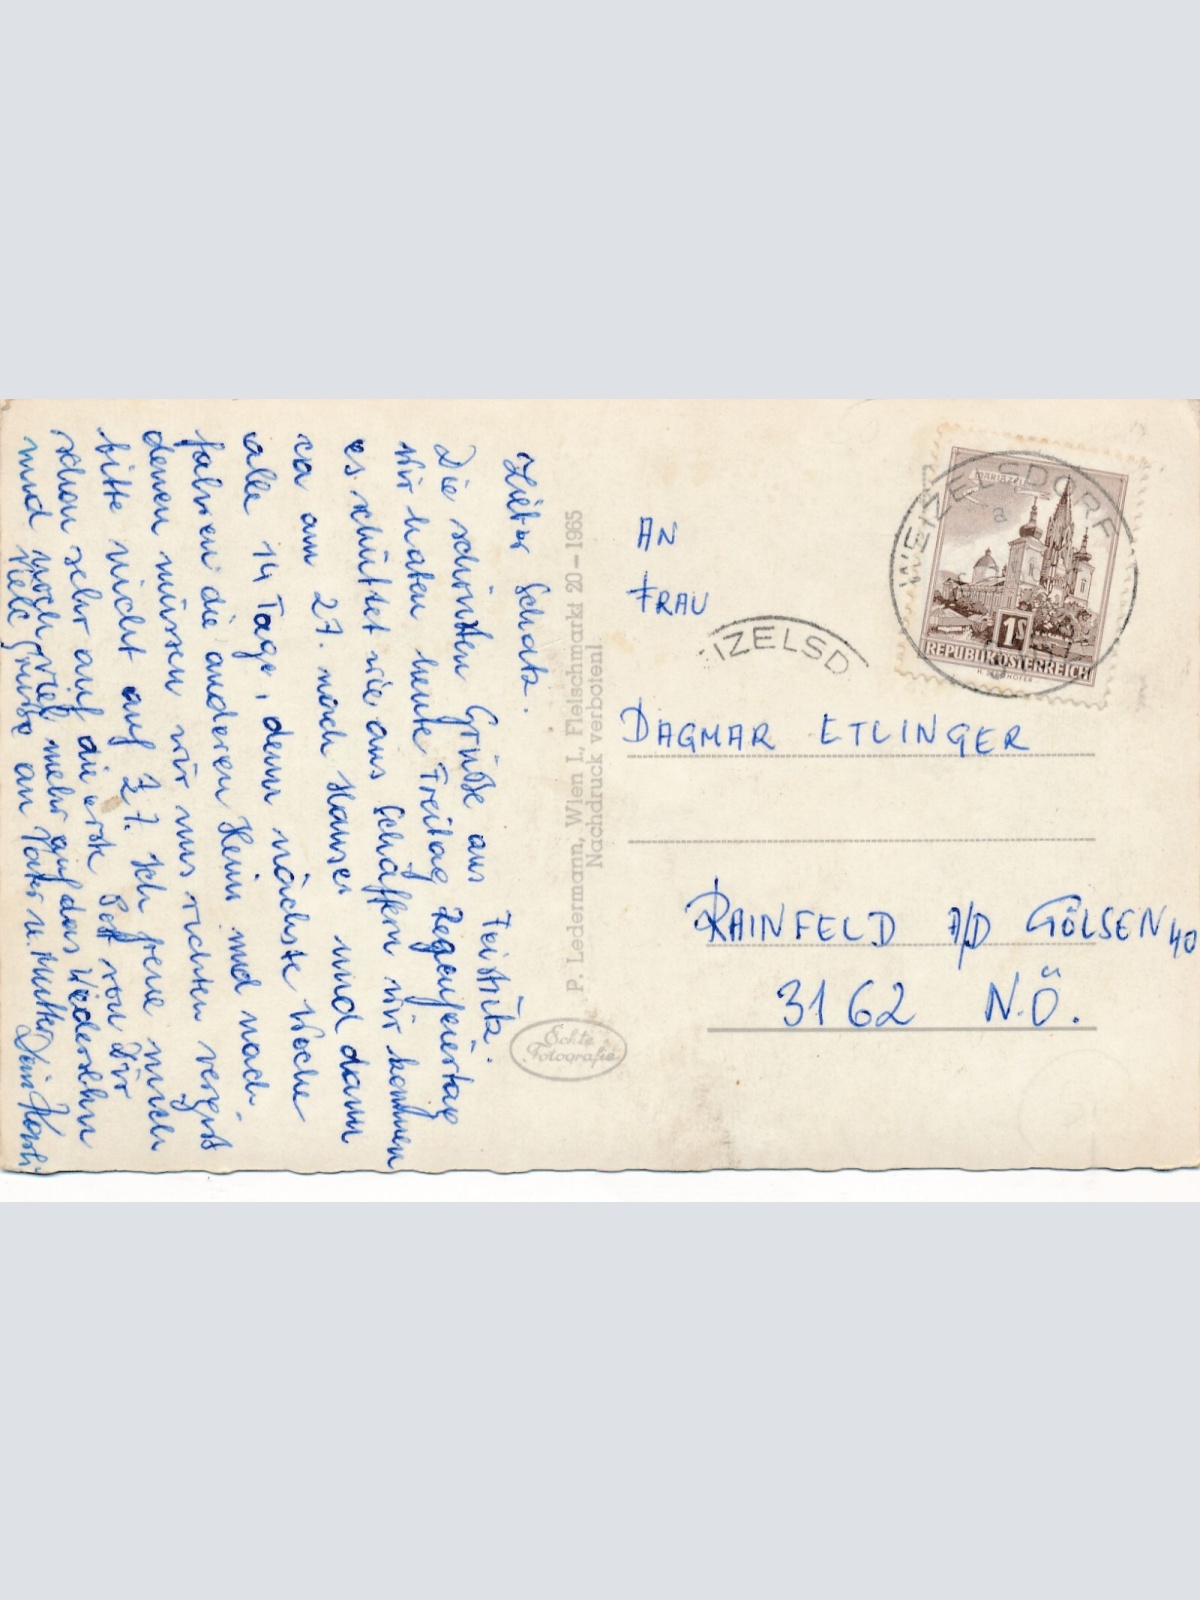 Lieber Schatz.
Die schönsten Grüße aus Feistritz.
Wir haben heute Freitag Regenfeiertag
es schüttet wie aus Schaffern wir kommen
ca am 27. nach Hause und dann
alle 14 Tage, denn nächste Woche
fahren die anderen Heim und nach
denen müssen wir uns richten vergiß
bitte nicht auf 27. Ich freue mich
schon sehr auf die erste Post von Dir
und noch viel mehr auf das Wiedersehn
Viele Grüße an Vater u. Mutter Dein
P. Ledermann, Wien I., Fleischmarkt 20 – 1965
Nachdruck verboten!
Echte
Fotografie
WEIZELSDORF
a
MARIAZELL
1S
REPUBLIK ÖSTERREICH
IZELSD
AN
FRAU
DAGMAR ETLINGER
RAINFELD A/D GÖLSEN 40
3162 N.Ö.